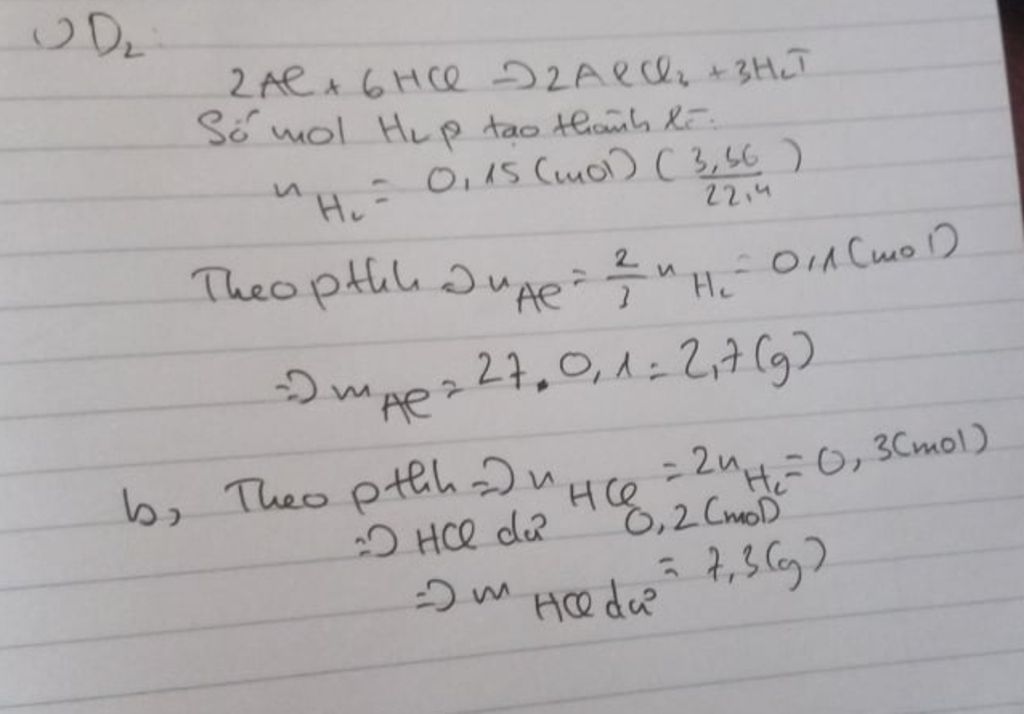 D₂:
2Al + 6HCl => 2AlCl₃ + 3H₂↑
Số mol H₂ tạo thành là:
n H₂ = 0,15 (mol) (3,36/22,4)
Theo pthh => n Al = 2/3 n H₂ = 0,1 (mol)
=> m Al = 27.0,1 = 2,7 (g)
b, Theo pthh => n HCl = 2n H₂ = 0,3 (mol)
=> HCl dư 0,2 (mol)
=> m HCl dư = 7,3 (g)